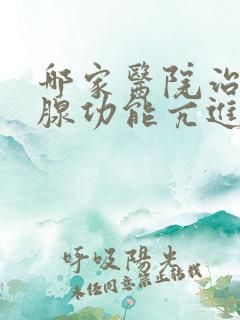 哪家醫院治
腺功能亢進
呼吸陽光
未经同意禁止转载